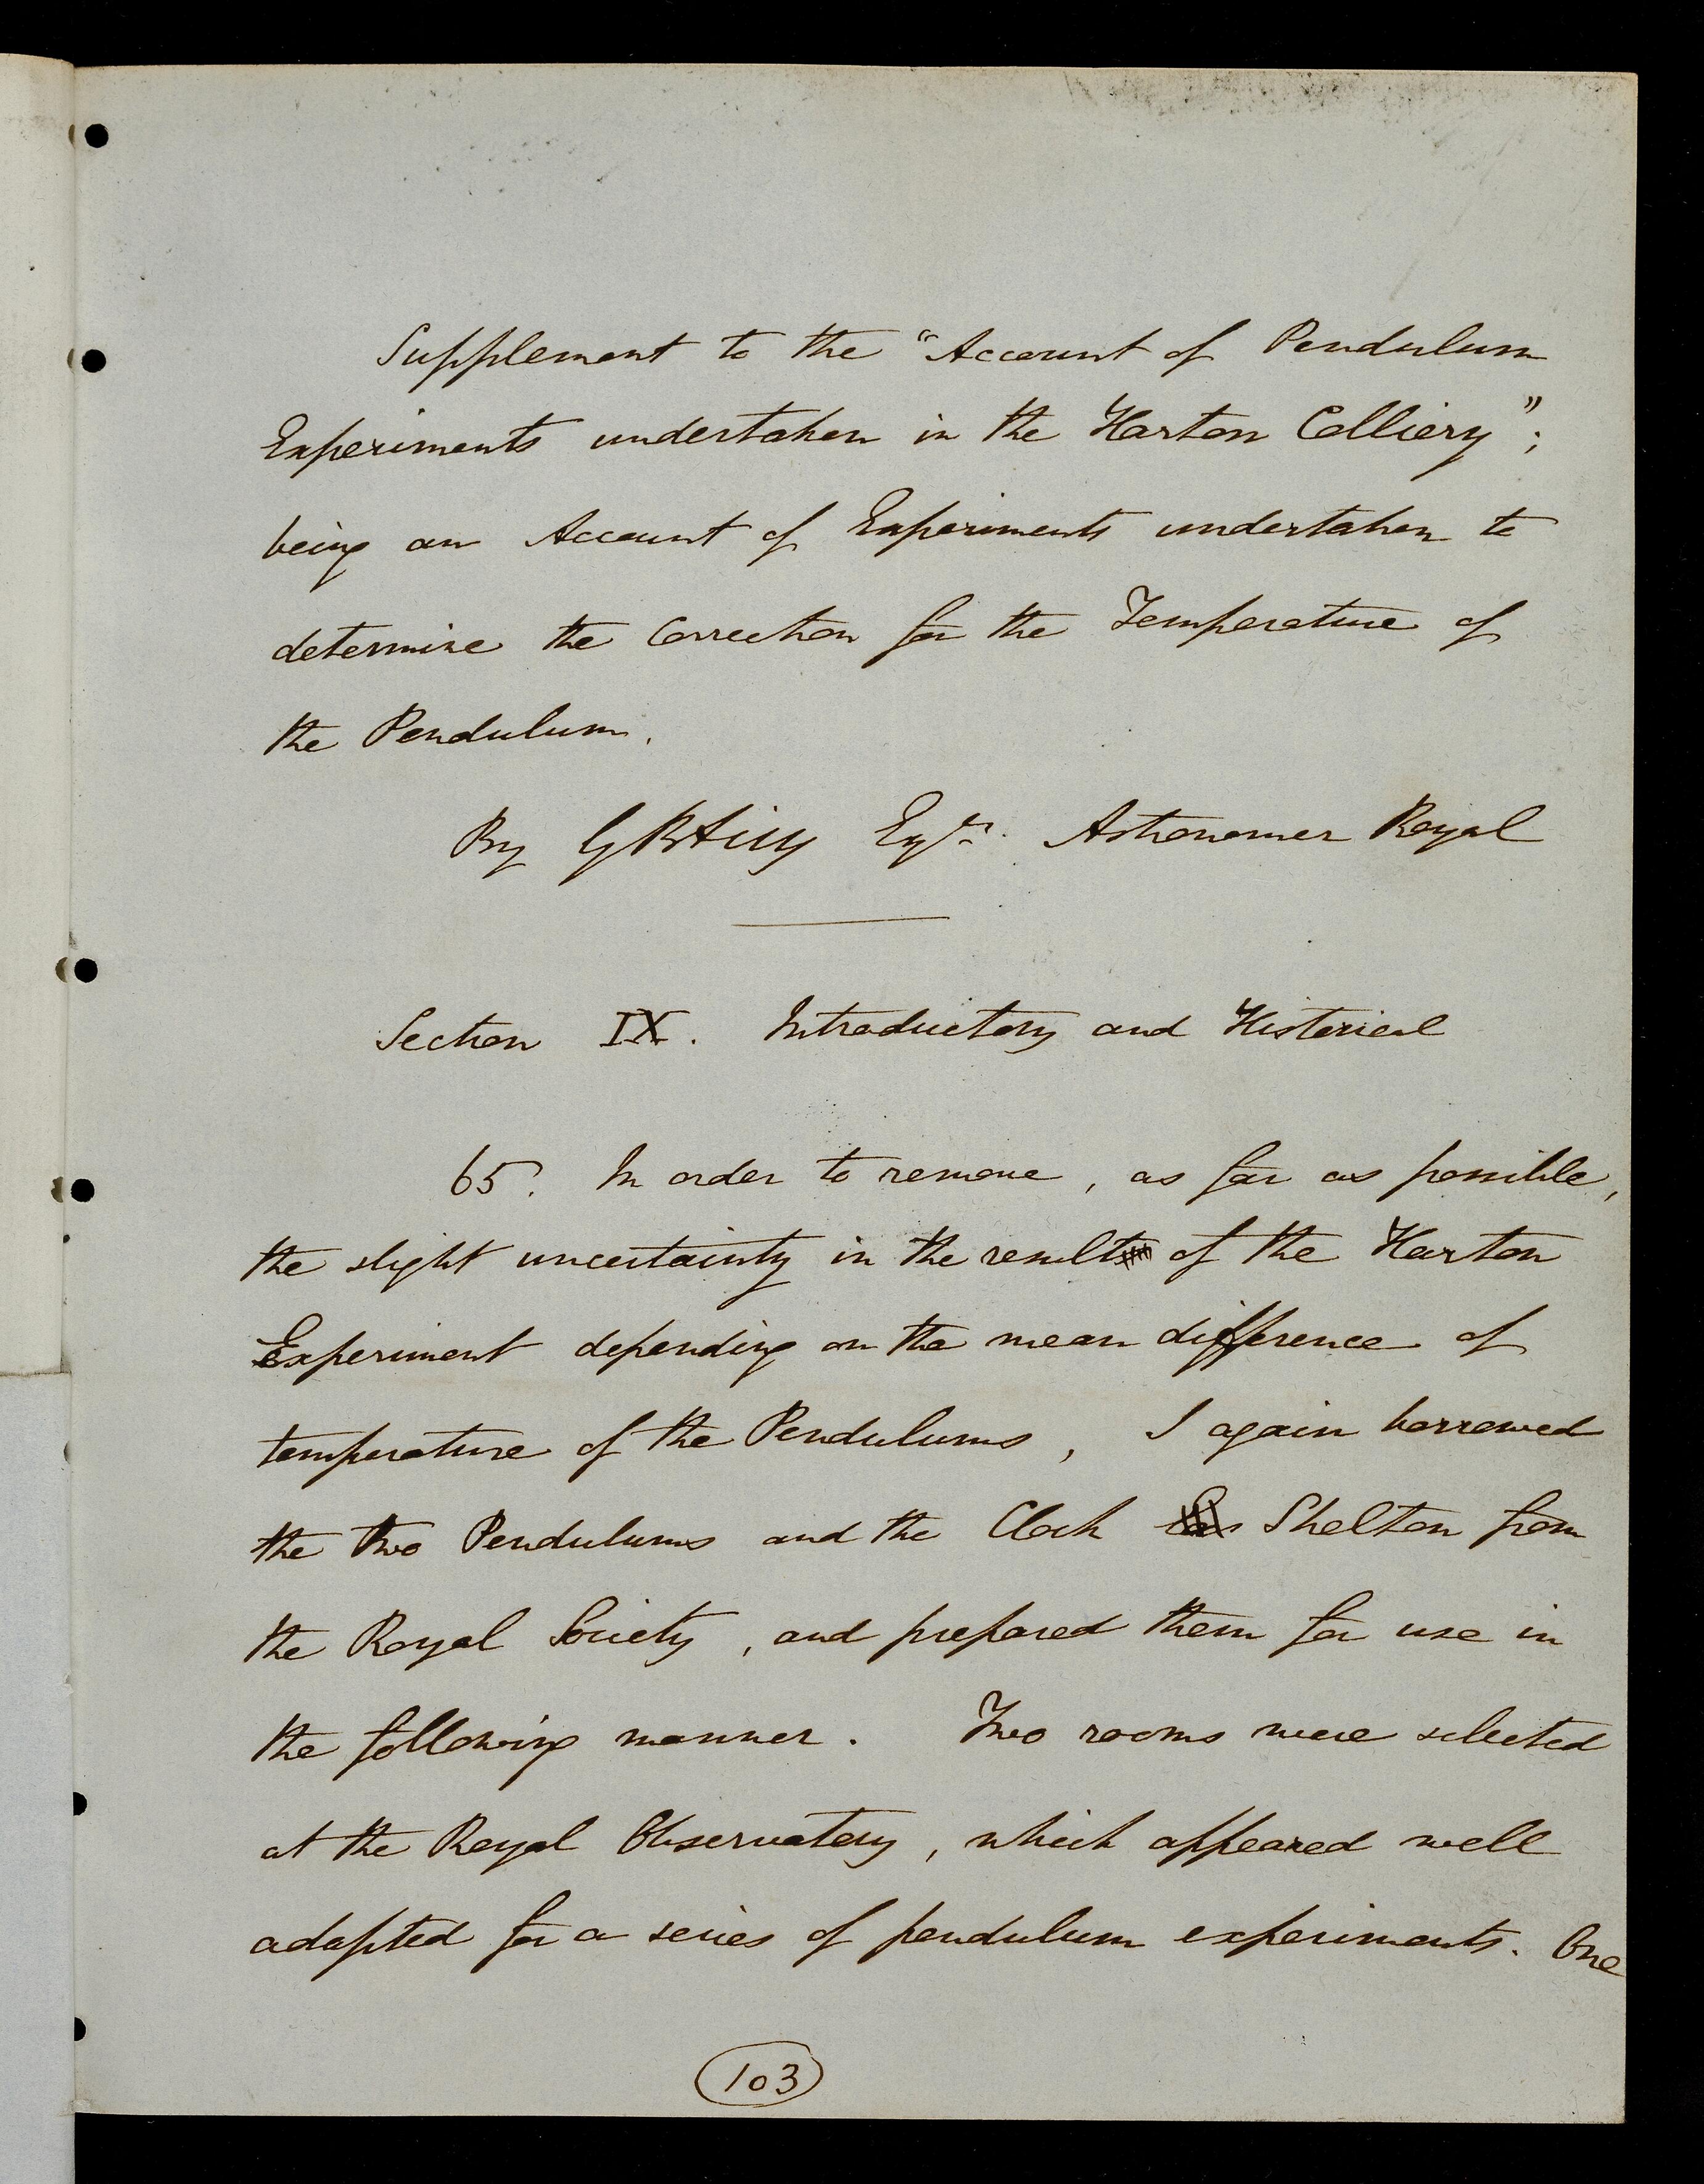 Supplement to the "Account of Pendulum
Experiments undertaken in the Harton Colliery";
being an Account of Experiments undertaken to
determine the Correction for the Temperature of
the Pendulum.
By G B Airy Esqre. Astronomer Royal
Section IX. Introductory and Historical
65. In order to remove, as far as possible,
the slight uncertainty in the result of the Harton
Experiment depending on the mean difference of
temperature of the Pendulums, I again borrowed
the two Pendulums and the Clock Shelton from
the Royal Society, and prepared them for use in
the following manner. Two rooms were selected
at the Royal Observatory, which appeared well
adapted for a series of pendulum experiments. One
103